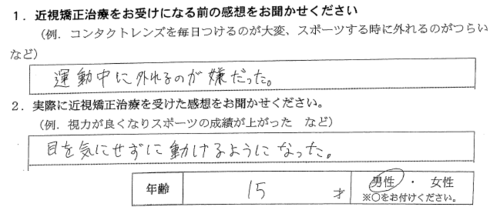 1．近視矯正治療をお受けになる前の感想をお聞かせください
（例．コンタクトレンズを毎日つけるのが大変、スポーツする時に外れるのがつらい
など）
運動中に外れるのが嫌だった。
2．実際に近視矯正治療を受けた感想をお聞かせください。
（例．視力が良くなりスポーツの成績が上がった　など）
目を気にせずに動けるようになった。
年齢　15　才　男性　・　女性
※○をお付けください。